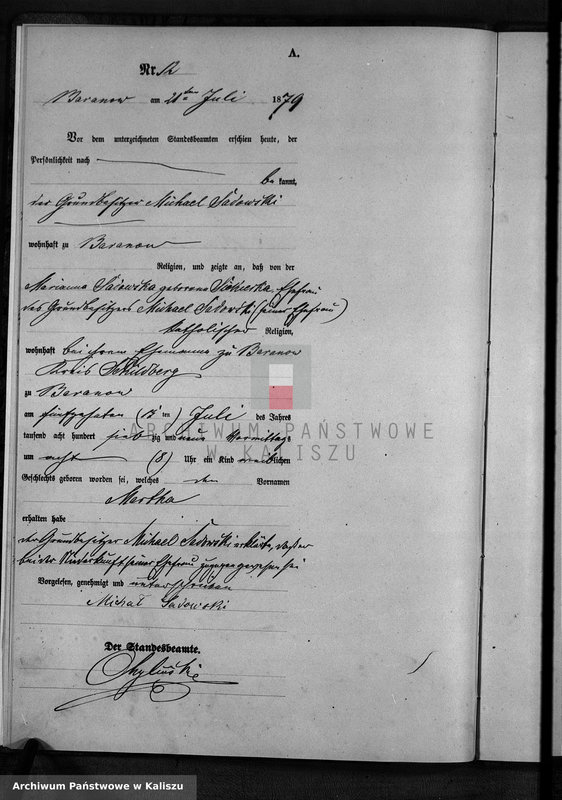 A.
Nr. 12
Baranow am 21ten Juli 1879
Vor dem unterzeichneten Standesbeamten erschien heute, der
Persönlichkeit nach
be kannt,
der Grundbesitzer Michael Sadowski
wohnhaft zu Baranow
Religion, und zeigte an, daß von der
Marianna Sadowska geborene Ehefrau
des Grundbesitzers Michael Sadowski (seiner Ehefrau)
katholischer Religion,
wohnhaft bei ihrem Ehemanne zu Baranow
Kreis Schildberg
zu Baranow
am fünfzehnten (15 ten) Juli des Jahres
tausend acht hundert sieb zig und neun Vormittags
um acht (8) Uhr ein Kind weiblichen
Geschlechts geboren worden sei, welches den Vornamen
Martha
erhalten habe
der Grundbesitzer Michael Sadowski erklärte, daß er
bei der Niederkunft seiner Ehefrau zugegen gewesen sei
Vorgelesen, genehmigt und unterschrieben
Michał Sadowski
Der Standesbeamte.
ARCHIWUM PAŃSTWOWE
W KALISZU
Archiwum Państwowe w Kaliszu